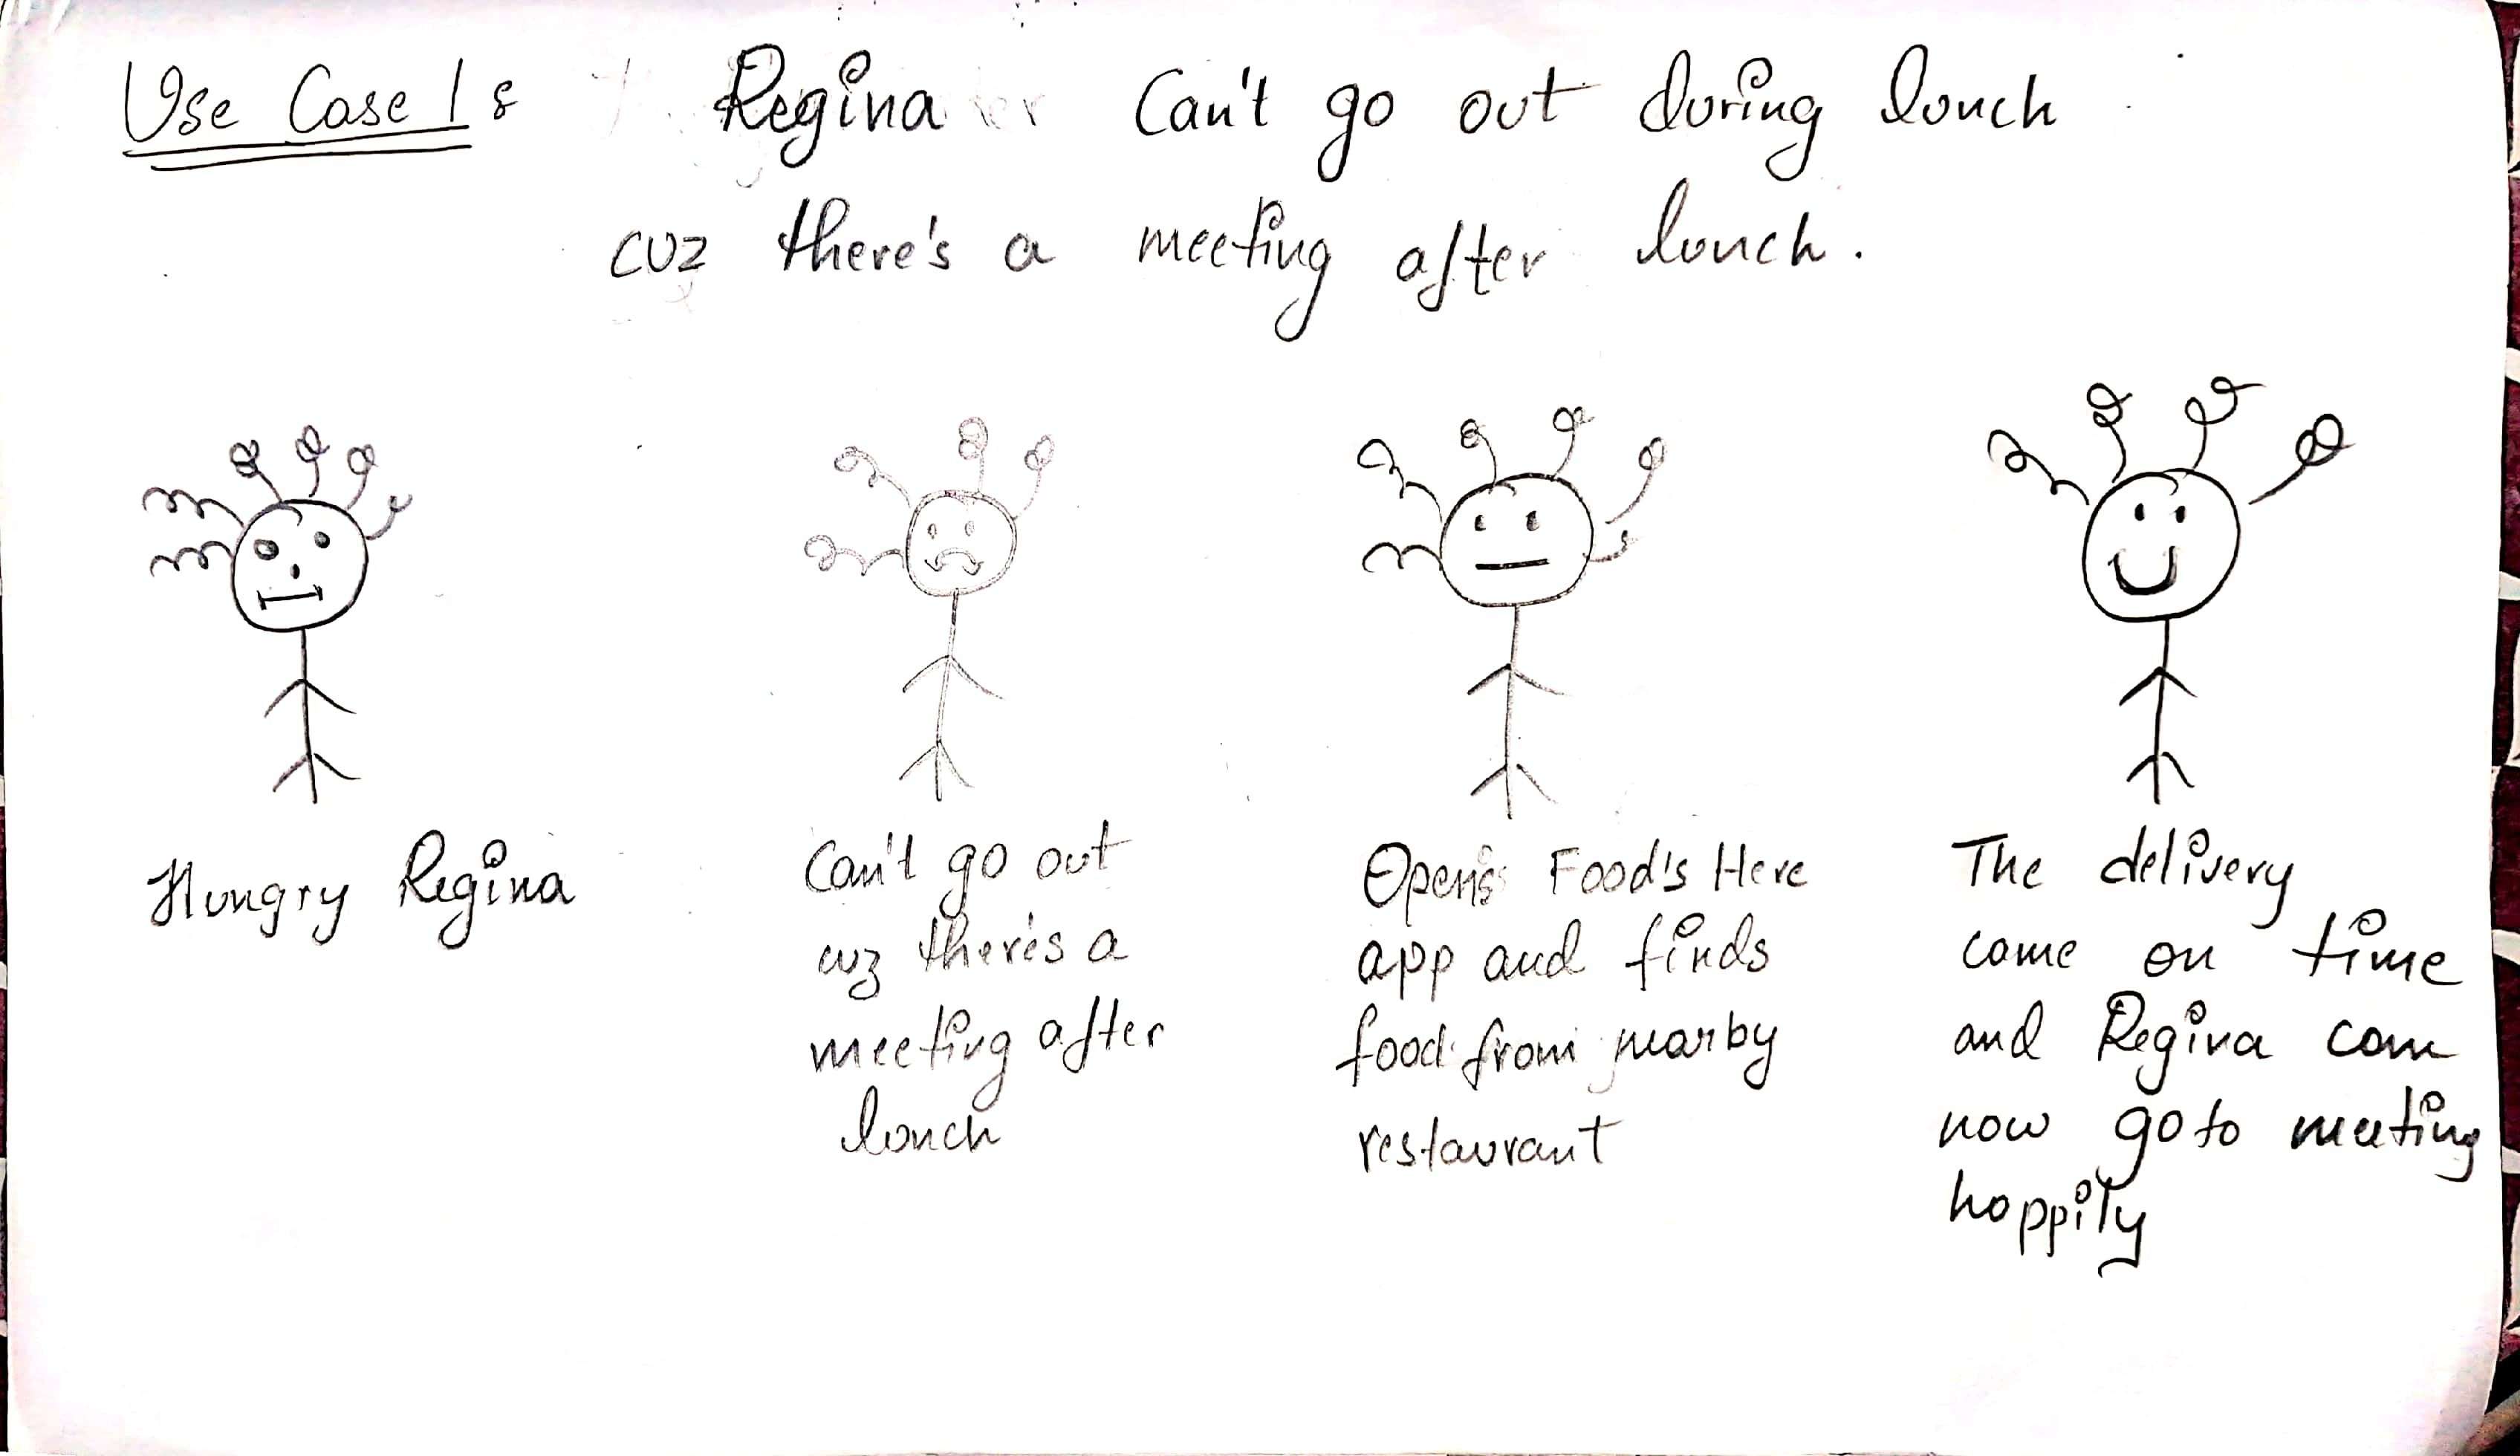 Use Case 1: Regina Can't go out during lunch
cuz there's a meeting after lunch.
Hungry Regina
Can't go out
cuz there's a
meeting after
lunch
Opens Food's Here
app and finds
food from nearby
restaurant
The delivery
came on time
and Regina can
now go to meeting
happily